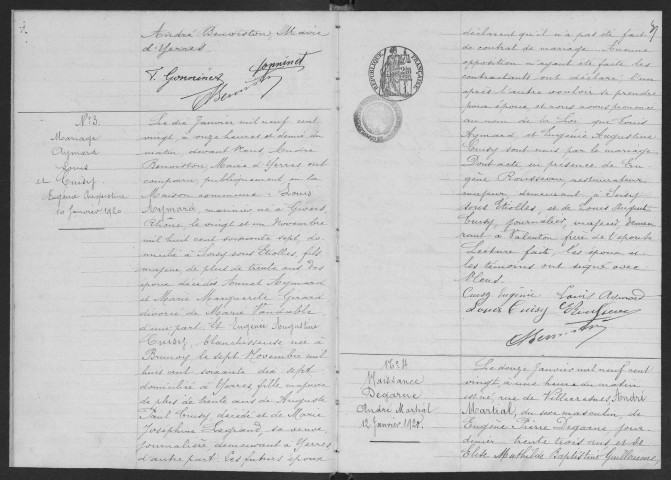 André Benoiston, Maire
d'Yerres.
N° 3.
Mariage
Aymard
Louis
et Cuisy
Eugénie Augustine
10 Janvier 1920
Le dix Janvier mil neuf cent
vingt, à onze heures et demie du
matin, devant Nous André
Benoiston Maire d'Yerres ont
comparu publiquement en la
Maison commune : Louis
Aymard, né à Givors,
Rhône, le vingt et un Novembre
mil huit cent soixante sept, do-
micilié à Soisy sous Etiolles, fils
majeur de plus de trente ans des
époux décédés Aymard
et Marie Marguerite Girard
divorcé de Marie
d'une part. Et Eugénie Augustine
Cuisy, blanchisseuse née à
Brunoy le sept Novembre mil
huit cent soixante dix sept
domiciliée à Yerres fille majeure
de plus de trente ans de Auguste
Paul Cuisy décédé et de Marie
Joséphine Legrand sa veuve,
journalière demeurant à Yerres
d'autre part. Les futurs époux
déclarent qu'il n'a pas été fait
de contrat de mariage. Aucune
opposition n'ayant été faite les
contractants ont déclaré l'un
après l'autre vouloir se prendre
pour époux et nous avons prononcé
au nom de la Loi que Louis
Aymard et Eugénie Augustine
Cuisy sont unis par le mariage
Dont acte en présence de Eu-
gène Rousseau, restaurateur
majeur demeurant à Soisy
sous Etiolles, et de Louis August
Cuisy, journalier, majeur demeu-
rant à Valenton frère de l'épouse
Lecture faite, les époux et
les témoins ont signé avec
Nous.
Cuisy Eugénie Louis Aymard
Louis Cuisy
RÉPUBLIQUE FRANÇAISE
N° 4
Naissance
Degarne
André Martial
12 Janvier 1920.
Le douze Janvier mil neuf cent
vingt, à une heure du matin
est né, rue de Villecresnes André
Martial, du sexe masculin de
Eugène Pierre Degarne jour-
nalier trente trois ans et de
Elise Mathilde Baptistine Guillaumes,